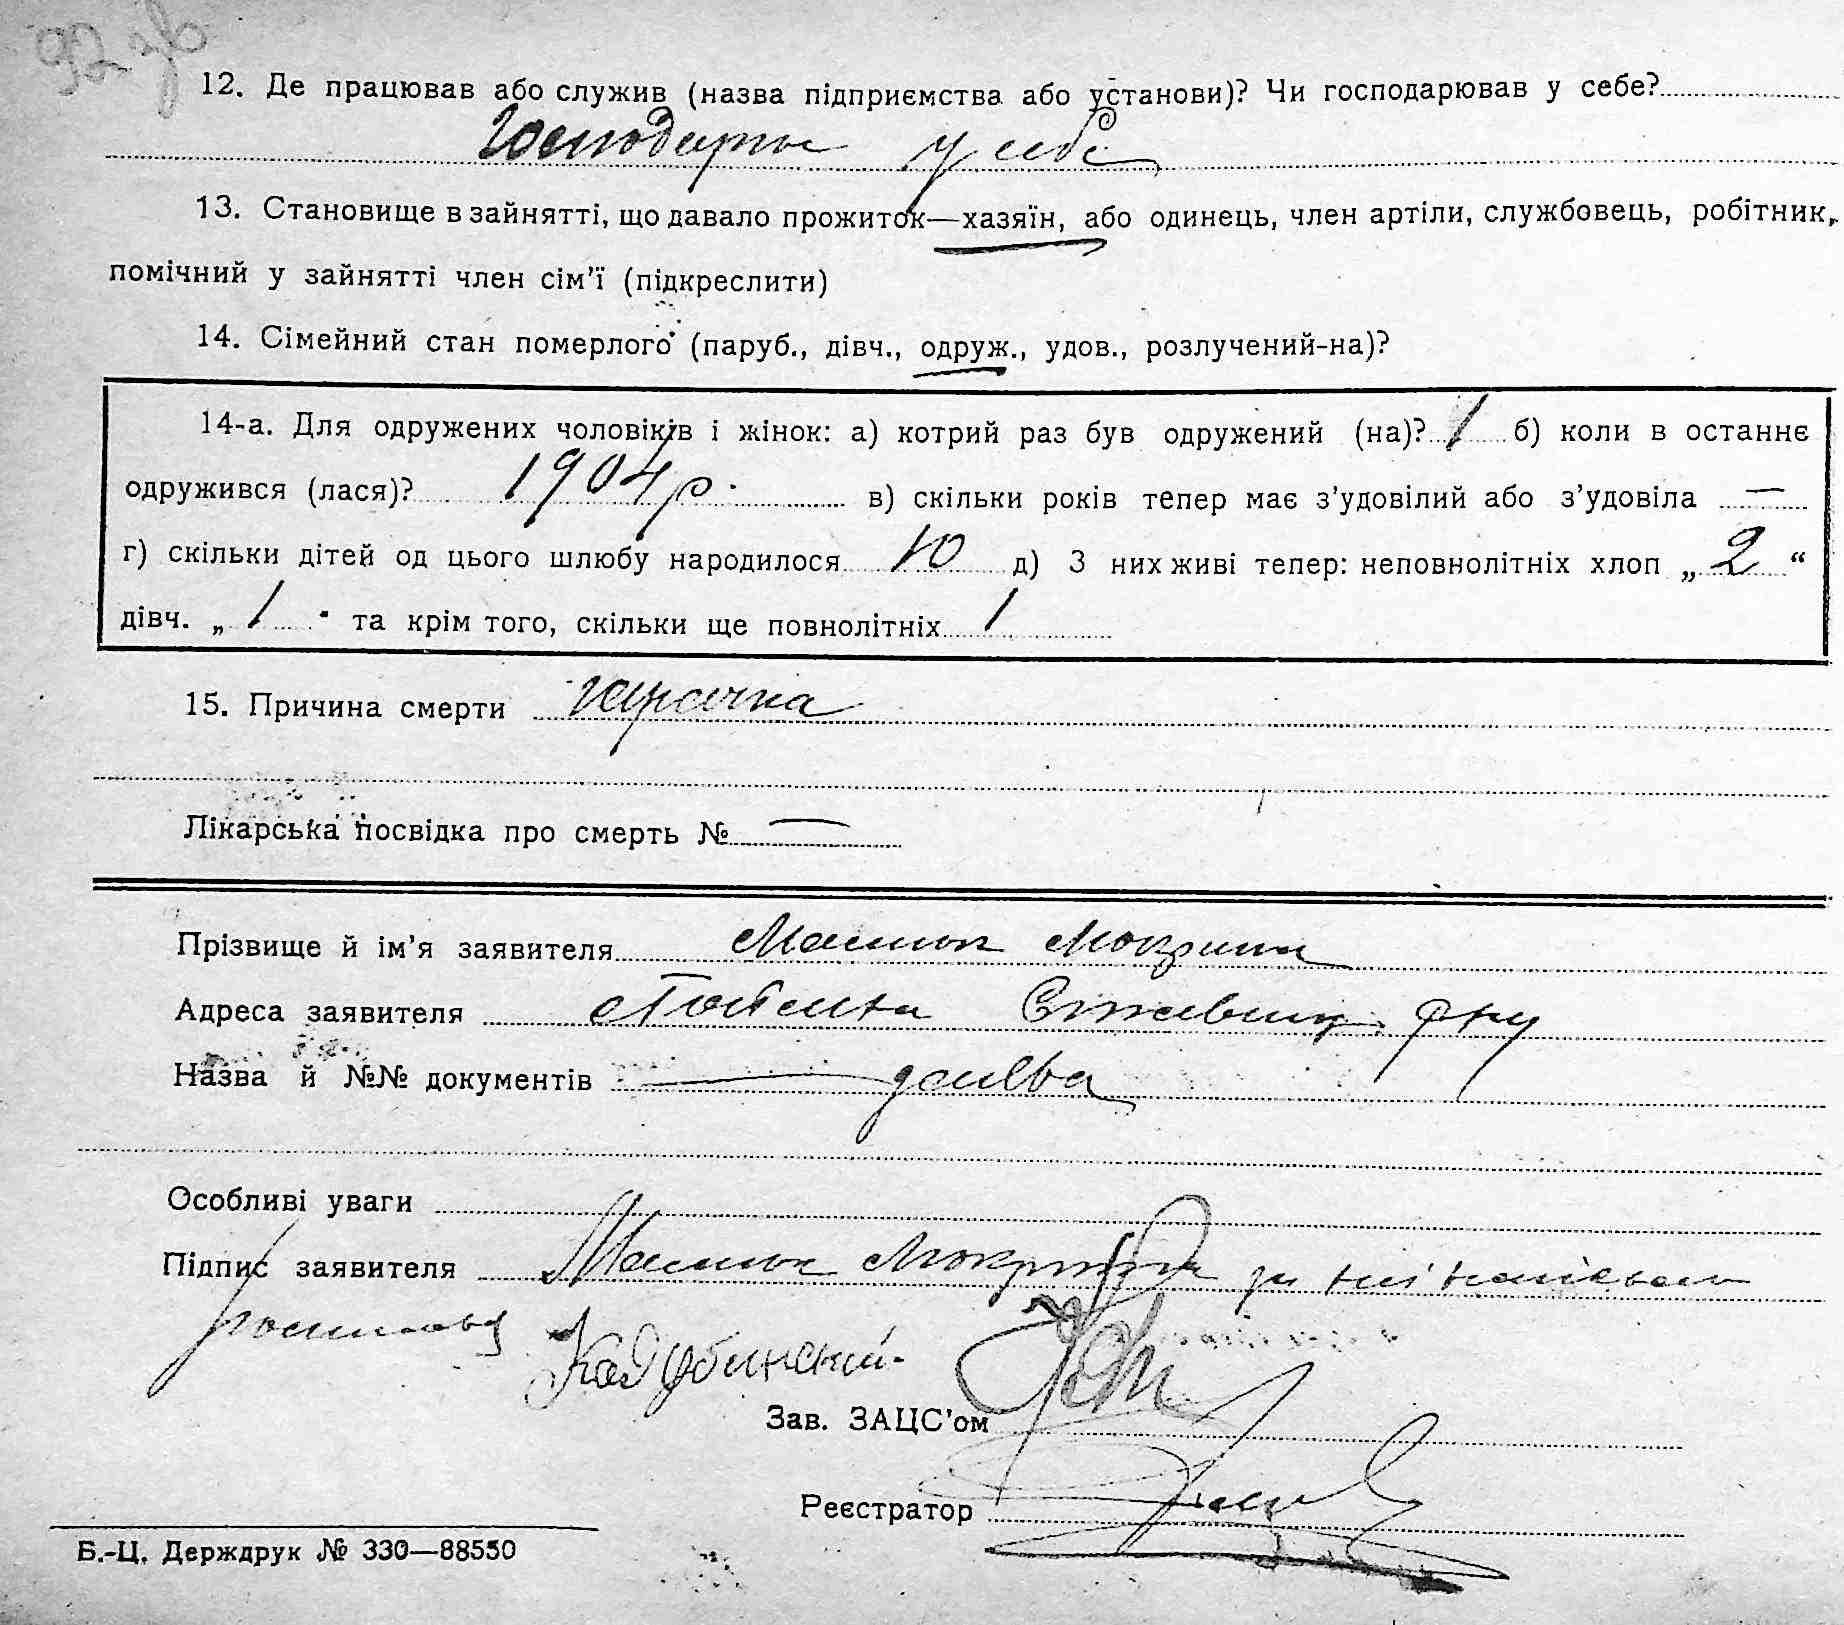 92 зв
12. Де працював або служив (назва підприємства або установи)? Чи господарював у себе?
у себе
13. Становище в зайнятті, що давало прожиток—хазяїн, або одинець, член артіли, службовець, робітник,
помічний у зайнятті член сім'ї (підкреслити)
14. Сімейний стан померлого (паруб., дівч., одруж., удов., розлучений-на)?
14-а. Для одружених чоловіків і жінок: а) котрий раз був одружений (на)? 1 б) коли в останнє
одружився (лася)? 1904 р. в) скільки років тепер має з'удовілий або з'удовіла —
г) скільки дітей од цього шлюбу народилося 10 д) З них живі тепер: неповнолітніх хлоп „ 2 “
дівч. „ 1 " та крім того, скільки ще повнолітніх 1
15. Причина смерти гарячка
Лікарська посвідка про смерть № —
Прізвище й ім'я заявителя Мокрина
Адреса заявителя
Назва й №№ документів —
Особливі уваги
Підпис заявителя Мокрина
Кадубинский
Зав. ЗАЦС'ом
Реєстратор
Б.-Ц. Держдрук № 330—88550